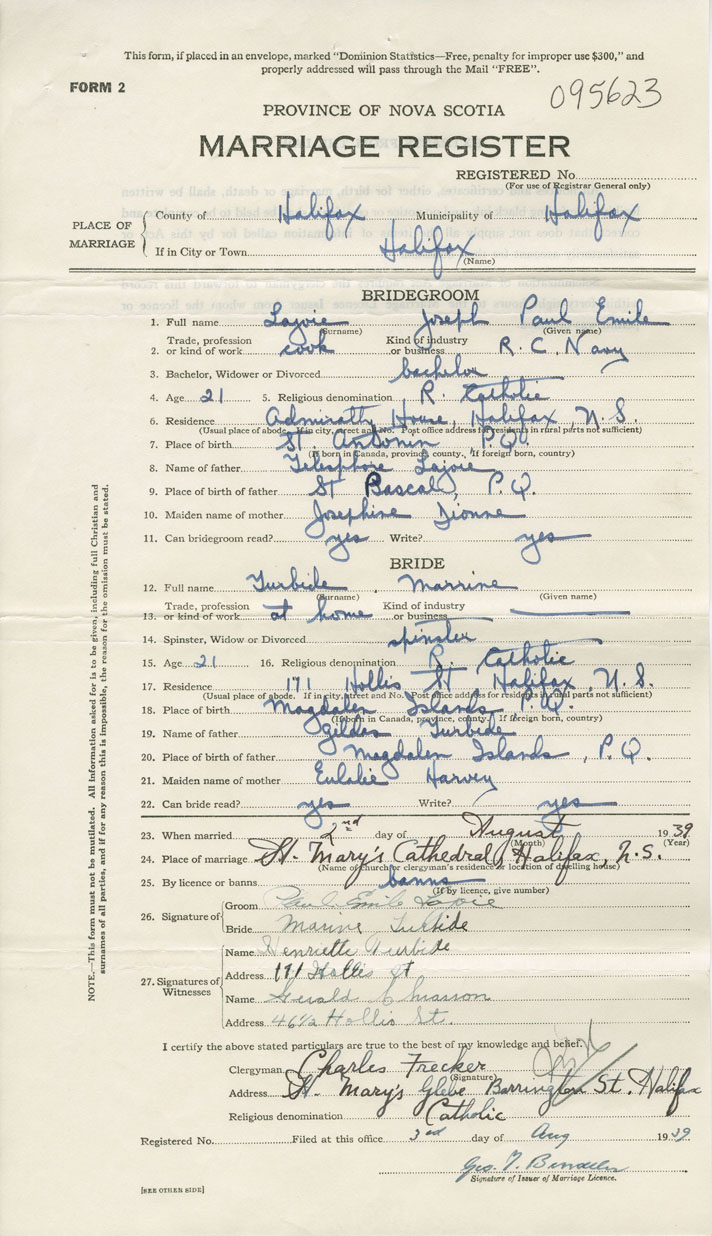 This form, if placed in an envelope, marked "Dominion Statistics—Free, penalty for improper use $300," and
properly addressed will pass through the Mail "FREE".
FORM 2
095623
PROVINCE OF NOVA SCOTIA
MARRIAGE REGISTER
REGISTERED No.
(For use of Registrar General only)
PLACE OF MARRIAGE
County of Halifax Municipality of Halifax
If in City or Town Halifax
(Name)
BRIDEGROOM
1. Full name Lajoie Joseph Paul Emile
(Surname) (Given name)
2. Trade, profession or kind of work cook Kind of industry or business R. C. Navy
3. Bachelor, Widower or Divorced bachelor
4. Age 21 5. Religious denomination R. Catholic
6. Residence Admiralty House, Halifax, N.S.
(Usual place of abode. If in city, street and No. Post office address for residents in rural parts not sufficient)
7. Place of birth St. Antonin P.Qu.
(If born in Canada, province, county. If foreign born, country)
8. Name of father Telesphore Lajoie
9. Place of birth of father St Pascal, P.Q.
10. Maiden name of mother Josephine Dionne
11. Can bridegroom read? yes Write? yes
BRIDE
12. Full name Turbide, Marrine
(Surname) (Given name)
13. Trade, profession or kind of work at home Kind of industry or business
14. Spinster, Widow or Divorced spinster
15. Age 21 16. Religious denomination R. Catholic
17. Residence 171 Hollis St Halifax, N.S.
(Usual place of abode. If in city, street and No. Post office address for residents in rural parts not sufficient)
18. Place of birth Magdalen Islands P.Q.
(If born in Canada, province, county. If foreign born, country)
19. Name of father Gildas Turbide
20. Place of birth of father Magdalen Islands, P.Q.
21. Maiden name of mother Eulalie Harvey
22. Can bride read? yes Write? yes
23. When married 2nd day of August 1939
(Month) (Year)
24. Place of marriage St. Mary's Cathedral, Halifax, N.S.
(Name of church or clergyman's residence or location of dwelling house)
25. By licence or banns banns
(If by licence, give number)
26. Signature of
Groom Paul Emile Lajoie
Bride Marine Turbide
27. Signatures of Witnesses
Name Henriette Turbide
Address 171 Hollis St
Name Gerald Chiasson
Address 46½ Hollis St.
I certify the above stated particulars are true to the best of my knowledge and belief.
Clergyman Charles Frecker
(Signature)
Address St. Mary's Glebe Barrington St. Halifax
Religious denomination Catholic
Registered No. Filed at this office 3rd day of Aug 1939
Signature of Issuer of Marriage Licence.
[SEE OTHER SIDE]
NOTE.—This form must not be mutilated. All information asked for is to be given, including full Christian and
surnames of all parties, and if for any reason this is impossible, the reason for the omission must be stated.